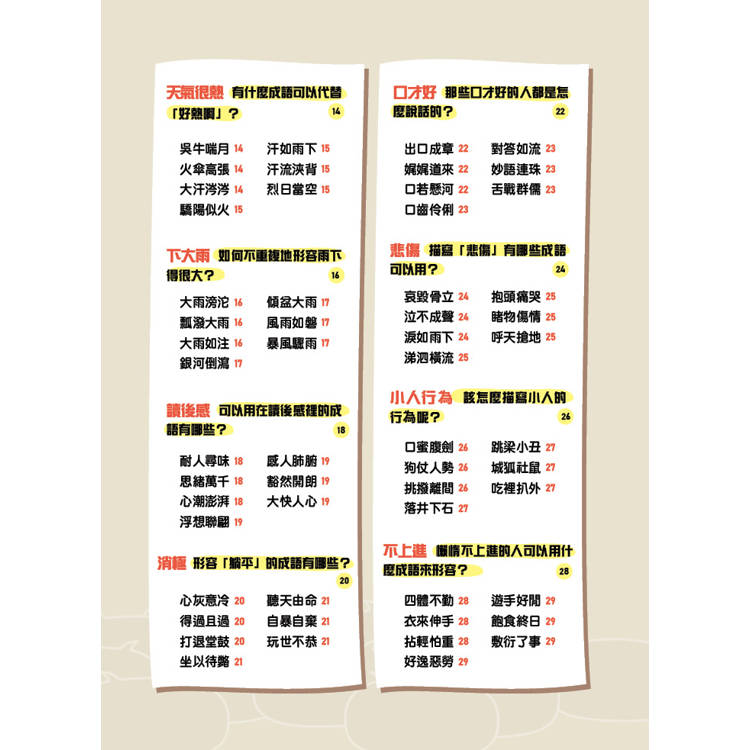 天氣很熱 有什麼成語可以代替
「好熱啊」? 14
吳牛喘月 14 汗如雨下 15
火傘高張 14 汗流浹背 15
大汗涔涔 14 烈日當空 15
驕陽似火 15
下大雨 如何不重複地形容雨下
得很大? 16
大雨滂沱 16 傾盆大雨 17
瓢潑大雨 16 風雨如磐 17
大雨如注 16 暴風驟雨 17
銀河倒瀉 17
讀後感 可以用在讀後感裡的成
語有哪些? 18
耐人尋味 18 感人肺腑 19
思緒萬千 18 豁然開朗 19
心潮澎湃 18 大快人心 19
浮想聯翩 19
消極 形容「躺平」的成語有哪些?
20
心灰意冷 20 聽天由命 21
得過且過 20 自暴自棄 21
打退堂鼓 20 玩世不恭 21
坐以待斃 21
口才好 那些口才好的人都是怎
麼說話的? 22
出口成章 22 對答如流 23
娓娓道來 22 妙語連珠 23
口若懸河 22 舌戰群儒 23
口齒伶俐 23
悲傷 描寫「悲傷」有哪些成語
可以用? 24
哀毀骨立 24 抱頭痛哭 25
泣不成聲 24 睹物傷情 25
淚如雨下 24 呼天搶地 25
涕泗橫流 25
小人行為 該怎麼描寫小人的
行為呢? 26
口蜜腹劍 26 跳梁小丑 27
狗仗人勢 26 城狐社鼠 27
挑撥離間 26 吃裡扒外 27
落井下石 27
不上進 懶惰不上進的人可以用什
麼成語來形容? 28
四體不勤 28 遊手好閒 29
衣來伸手 28 飽食終日 29
拈輕怕重 28 敷衍了事 29
好逸惡勞 29